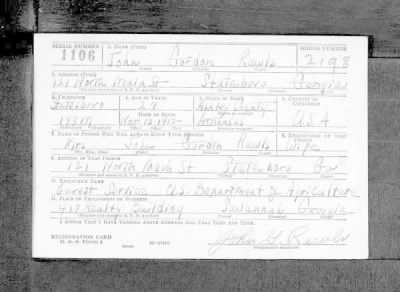 SERIAL NUMBER 1. NAME (Print) ORDER NUMBER
1106 John Gordon Rawls 2198
(First) (Middle) (Last)
2. ADDRESS (Print)
121 North Main St Statesboro Georgia
3. TELEPHONE 4. AGE IN YEARS 5. PLACE OF BIRTH 6. COUNTRY OF CITIZENSHIP
Statesboro 27 County
DATE OF BIRTH
193M Nov. 12, 1912 Arkansas U.S.A
7. NAME OF PERSON WHO WILL ALWAYS KNOW YOUR ADDRESS 8. RELATIONSHIP OF THAT PERSON
Mrs John Gordon Rawls Wife
9. ADDRESS OF THAT PERSON
121 North Main St Statesboro Ga
10. EMPLOYER'S NAME
Forest Service U.S. Department of Agriculture
11. PLACE OF EMPLOYMENT OR BUSINESS
419 Realty Building Savannah Georgia
I AFFIRM THAT I HAVE VERIFIED ABOVE ANSWERS AND THAT THEY ARE TRUE.
REGISTRATION CARD
D. S. S. Form 1 John G. Rawls